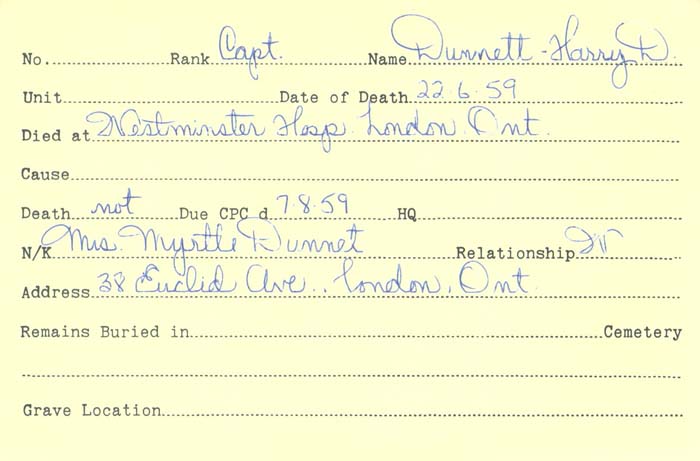 No. Rank Capt. Name Dunnett - Harry D.
Unit Date of Death 22.6.59
Died at Westminster Hosp. London Ont.
Cause
Death not Due CPC d 7.8.59 HQ
N/K Mrs. Myrtle Dunnet Relationship W
Address 38 Euclid Ave., London, Ont.
Remains Buried in Cemetery
Grave Location